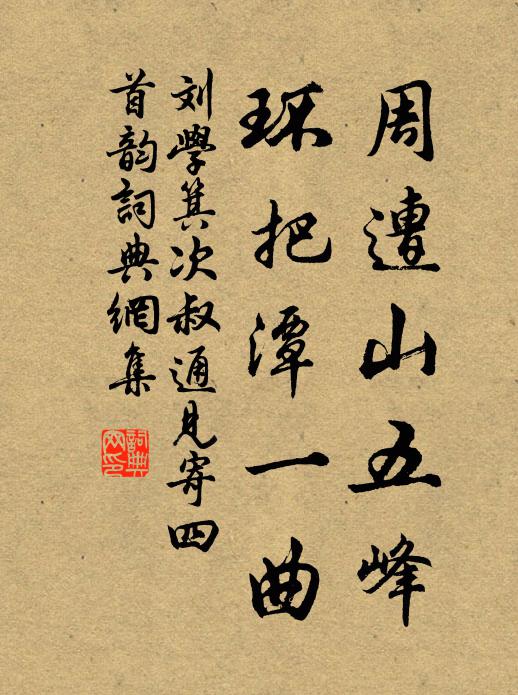 周遭山五峰
环把潭一曲
刘學箕次叔通見寄四
首韵詞典網集
詞典
网印